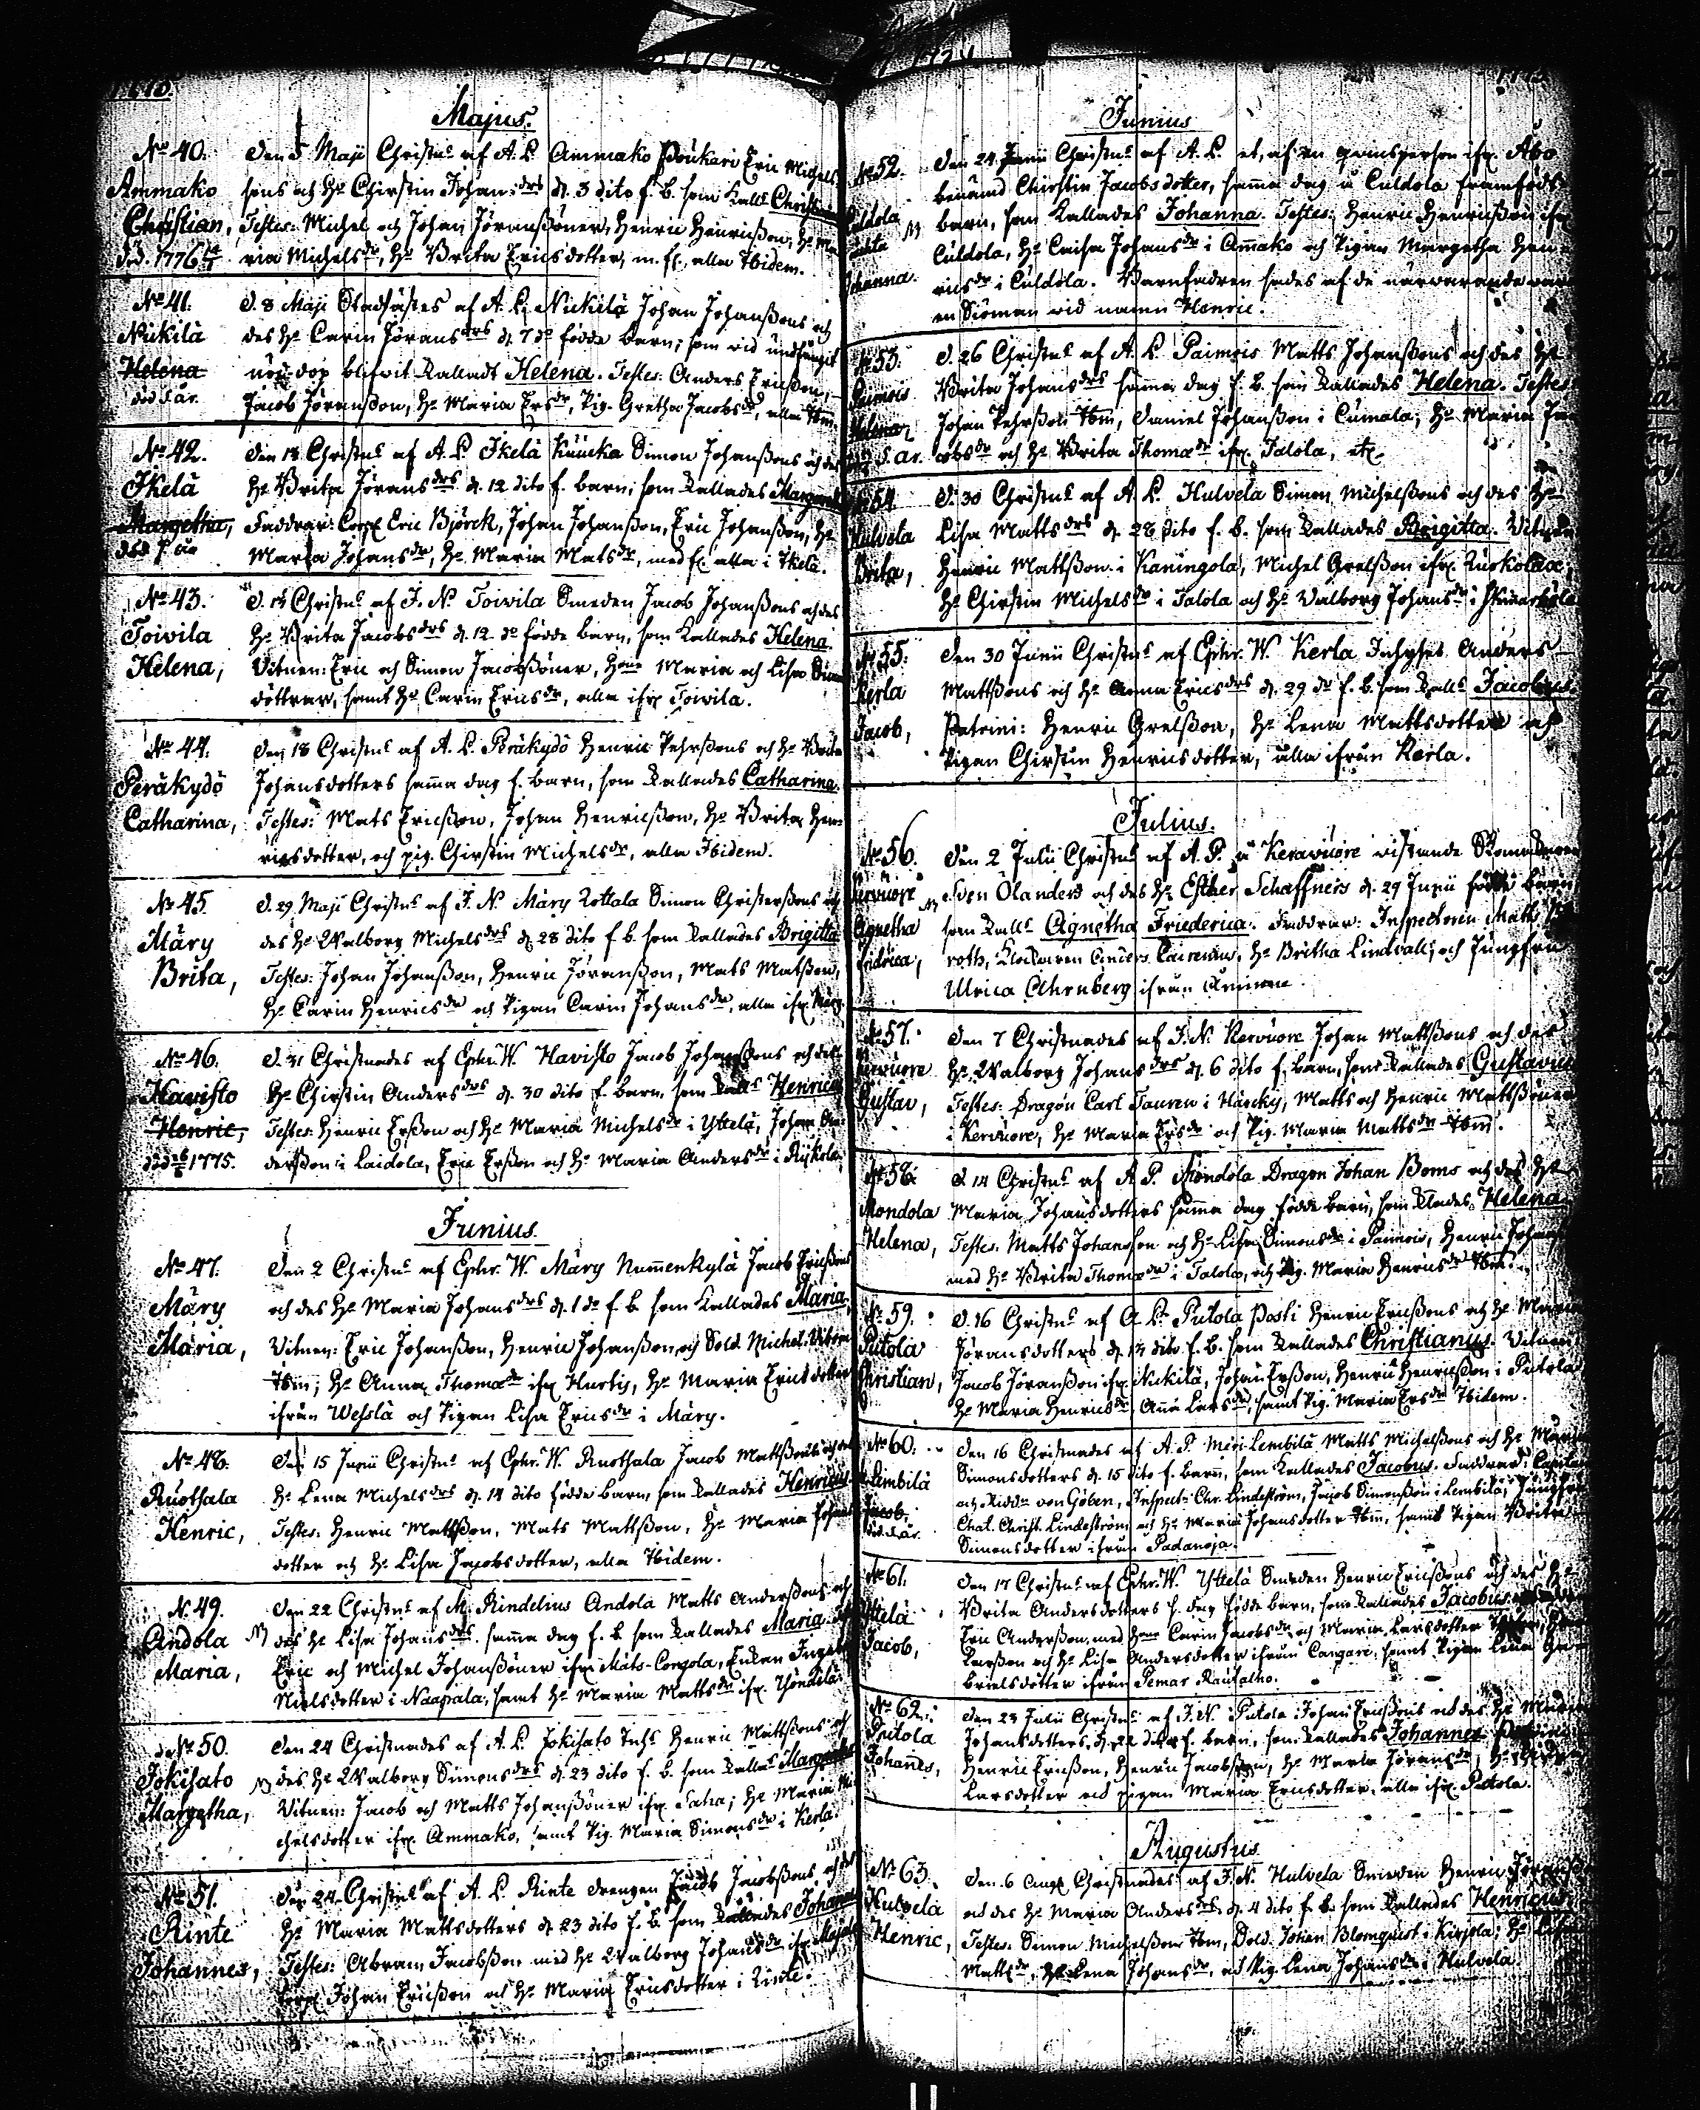 Majus.
No 40.
Ammako
Christian,
död. 1776
Den 5 Maji Christns af A. L. Ammako Poukari Eric Michels
sons och Hs Chirstin Johans drs d. 3 dito f. b. som Kalls Christian
Testes: Michel och Johan Jöranssöner, Henric Henricsson, Hs Ma
ria Michels dr, Hs Brita Ericsdotter, m. fl. alla Ibidem.
No 41.
Nickilä
Helena
död 5 år.
d. 8 Maji Stadfästes af A. L. Nickilä Johan Johanssons och
des Hs Carin Jörans drs d. 7 do födde barn, som vid undfångit
nöd-dop blifwit Kalladt Helena. Testes: Anders Ericsson,
Jacob Jöransson, Hs Maria Ers dr, Pig. Gretha Jacobs dr, alla Ibm.
No 42.
Ikelä
Margetha,
Den 13 Christns af A. L. Ikelä Kuucka Simon Johanssons och des
Hs Brita Jörans drs d. 12 dito f. barn, som Kallades
Faddrar: Corpl Eric Björck, Johan Johansson, Eric Johansson, Hs
Maria Johans dr, Hs Maria Mats dr, med fl. alla i Ikelä.
No 43.
Toivila
Helena,
Christns af J. N. Toivila Smeden Jacob Johanssons och des
Hs Brita Jacobs drs d. 12 do födde barn, som Kallades Helena.
Vitnen: Eric och Simon Jacobssöner, Maria och Lisa
döttrar, samt Hs Carin Erics dr, alla ifr. Toivila.
No 44.
Peräkydö
Catharina,
Den 18 Christns af A. L. Peräkydö Henric Pehrssons och Hs Brita
Johansdotters samma dag f. barn, som Kallades Catharina.
Testes: Mats Ericsson, Johan Henricsson, Hs Brita Hen-
ricsdotter, och pig. Chirstin Michels dr, alla Ibidem.
No 45.
Märy
Brita,
d. 29 Maji Christns af J. N. Märy Kottala Simon Christerssons och
des Hs Walborg Michels drs d. 28 dito f. b. som Kallades Brigitta
Testes: Johan Johansson, Henric Jöransson, Mats Matsson,
Hs Carin Henrics dr och Pigan Carin Johans dr, alla ifr. Märy.
No 46.
Havisto
Henric,
1775.
d. 31 Christnades af Ephr. W. Havisto Jacob Johanssons och des
Hs Chirstin Anders drs d. 30 dito f. barn, som Kalls Henricus
Testes: Henric Ersson och Hs Maria Michels dr i Yttelä, Johan An-
dersson i Laidola, Eric Ersson och Hs Maria Anders dr i Rijkola.
Junius.
No 47.
Märy
Maria,
Den 2 Christns af Ephr. W. Märy Nummenkylä Jacob Ericssons
och des Hs Maria Johans drs d. 1 do f. b. som Kallades Maria,
Vitnen: Eric Johansson, Henric Johansson, och Sold. Michel
Ibm; Hs Anna Thomæ dr ifr. Hurtis, Hs Maria Ericsdotter
ifrån Wesslä och Pigan Lisa Erics dr i Märy.
No 48.
Ruothala
Henric,
Den 15 Junii Christns af Ephr. W. Ruothala Jacob Mattssons och des
Hs Lena Michels drs d. 14 dito födde barn, som Kallades Henricus
Testes: Henric Mattsson, Mats Mattsson, Hs Maria Johans
dotter och Hs Lisa Jacobsdotter, alla Ibidem.
N. 49.
Andola
Maria,
Den 22 Christns af M. Rindelius Andola Matts Anderssons och
des Hs Lisa Johans drs samma dag f. b. som Kallades Maria.
Eric och Michel Johanssöner ifr. Mats-Congola, Enkan
Nielsdotter i Naapala, samt Hs Maria Matts dr ifr.
No 50.
Jokisato
Margetha,
Den 24 Christnades af A. L. Jokisato Inhs Henric Mattssons och
des Hs Walborg Simons drs d. 23 dito f. b. som Kalls Margaretha
Vitnen: Jacob och Matts Johanssöner ifr. Saha; Hs Maria Mi
chelsdotter ifr. Ammako, samt Pig. Maria Simons dr i Kerla.
No 51.
Rinte
Johannes,
Den 24 Christns af A. L. Rinte drengen Jacob Jacobssons och des
Hs Maria Mattsdotters d. 23 dito f. b. som Kallades Johannes
Testes: Abram Jacobsson med Hs Walborg Johans dr ifr.
Johan Ericsson och Hs Maria Ericsdotter i Rinte.
Junius
No 52.
Culdola
Johanna.
Den 24 Junii Christns af A. L. et, af en qvinsperson ifr. Åbo
benämd Chirstin Jacobsdotter, samma dag i Culdola framfödt
barn, som Kallades Johanna. Testes: Henric Henricsson ifr.
Culdola, Hs Caisa Johans dr i Ammako och Pigan Margetha Hen-
rics dr i Culdola. Barnfadren sades af de närwarande war
en Siöman vid namn Henric.
No 53.
Paimois
Helena,
5 år.
d. 26 Christns af A. L. Paimois Matts Johanssons och des Hs
Brita Johans drs samma dag f. b. som Kallades Helena. Testes:
Johan Pehrsson Ibm, Daniel Johansson i Cumala, Hs Maria Ja-
cobs dr och Hs Brita Thomæ dr ifr. Talola, etc.
No 54
Hulvela
Brita,
d. 30 Christns af A. L. Hulvela Simon Michelssons och des Hs
Lisa Matts drs d. 28 dito f. b. som Kallades Brigitta. Vitnen
Henric Mattsson i Kaningola, Michel Grelsson ifr.
Hs Chirstin Michels dr i Talola och Hs Valborg Johans dr i
No 55.
Kerla
Jacob,
Den 30 Junii Christns af Ephr. W. Kerla Inhyses Anders
Mattssons och Hs Anna Erics drs d. 29 do f. b. som Kalls Jacobus.
Patrini: Henric Grelsson, Hs Lena Mattsdotter och
Pigan Chirstin Henricsdotter, alla ifrån Kerla.
Julius.
No 56.
Kervuore
Agnetha
Fridrica,
Den 2 Julii Christns af A. P. på Keravuore vistande
Sven Olanders och des Hs Esther Schaffners d. 29 Junii födde barn
som Kalls Agnetha Friederica. Faddrar: Inspectoren Matts
roth, Klockaren Anders Hs Britha Lindvall, och Jungfru
Ulrica Ahrnberg ifrån
No 57.
Kervuore
Gustav,
Den 7 Christnades af J. N. Kervuore Johan Mattssons och des
Hs Walborg Johans drs d. 6 dito f. barn, som Kallades Gustavus
Testes: Dragon Carl Tauren i Härcky, Matts och Henric Mattssöner
i Kervuore, Hs Maria Ers dr och Pig. Maria Matts dr Ibm.
No 58.
Mondola
Helena,
d. 14 Christns af A. P. Mondola Dragon Johan Boms och des Hs
Maria Johansdotters samma dag födde barn, som Klades Helena
Testes: Matts Johansson och Hs Lisa Simons dr i Paimois, Henric
med Hs Brita Thomæ dr i Talola, och Pig. Maria Henrics dr Ibm.
No 59.
Putola
Christian,
d. 16 Christns af A. L. Putola Posti Henric Ericssons och Hs Maria
Jöransdotters d. 14 dito f. b. som Kallades Christianus. Vitnen:
Jacob Jöransson ifr. Nickilä, Johan Ersson, Henric Henricsson i Putola
Hs Maria Henrics dr, Anna Lars dr, samt Pig. Maria Ers dr Ibidem.
No 60.
Lembilä
Jacob.
Den 16 Christnades af A. P. Meri-Lembilä Matts Michelssons och Hs Maria
Simonsdotters d. 15 dito f. barn, som Kallades Jacobus. Faddrar: Capitain
och Ridd:n von Göben, Inspect: Chr. Lindeström, Jacob Simonsson i Lembilä, Jungfru
Chat. Christ. Lindeström och Hs Maria Johansdotter Ibm, samt Pigan Brita
Simonsdotter ifrån Padanoja.
No 61.
Yttelä
Jacob,
Den 17 Christns af Ephr. W. Yttelä Smeden Henric Ericssons och des Hs
Brita Andersdotters s. dag födde barn, som Kallades Jacobus.
Eric Andersson med Carin Jacobs dr och Maria Larsdotter
Larsson och Hs Lisa Andersdotter ifrån Cangare, samt Pigan Lena Ga-
brielsdotter ifrån Pemar Rautalho.
No 62.
Putola
Johannes,
Den 23 Julii Christns af J. N. Putola Johan Ericssons och des Hs
Johansdotters d. 22 dito f. barn, som Kallades Johannes.
Henric Ericsson, Henric Jacobsson, Hs Maria Jörans dr, Hs
Larsdotter och pigan Maria Ericsdotter, alla ifr. Putola.
Augustus
No 63.
Hulvela
Henric,
Den 6 Aug. Christnades af J. N. Hulvela Smeden Henric
och des Hs Maria Anders drs d. 4 dito f. b. som Kallades Henricus.
Testes: Simon Michelsson Ibm, Sold. Johan Blomquist i Kirjola, Hs Lisa
Matts dr, Hs Lena Johans dr, och Pig. Lena Johans dr i Hulvela.